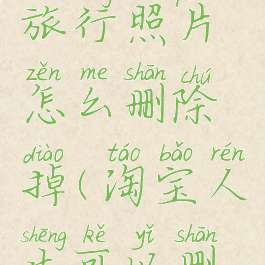 旅行照片
zěn me shān chú
怎么删除
diào táo bǎo rén
掉(淘宝人
shēng kě yǐ shān
生可以删